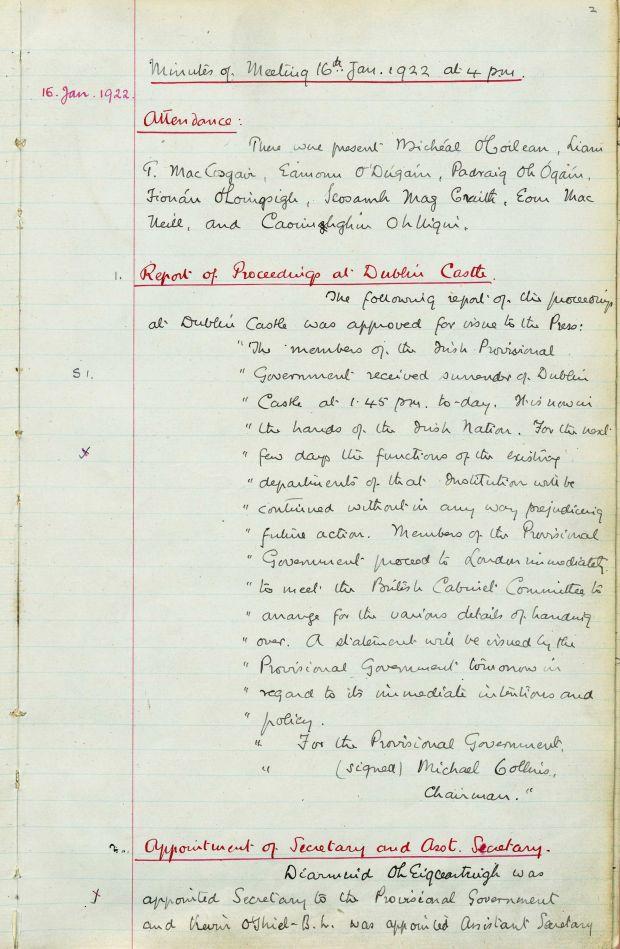 2
Minutes of Meeting 16th Jan. 1922 at 4 pm.
16. Jan. 1922.
Attendance:
There were present Micheál O'Coileán, Liam
T. MacCosgair, Eamonn O'Dúgáin, Padraig Oh Ógáin,
Fionán O'Loingsigh, Seosamh Mag Craith, Eoin Mac
Neill, and Caoimhghín Oh Uigin.
1. Report of Proceedings at Dublin Castle.
The following report of the proceedings
at Dublin Castle was approved for issue to the Press:
" The members of the Irish Provisional
S1. " Government received surrender of Dublin
" Castle at 1.45 pm. to-day. It is now in
" the hands of the Irish Nation. For the next
x " few days the functions of the existing
" departments of that Institution will be
" continued without in any way prejudicing
" future action. Members of the Provisional
" Government proceed to London immediately
" to meet the British Cabinet Committee to
" arrange for the various details of handing
" over. A statement will be issued by the
" Provisional Government tomorrow in
" regard to its immediate intentions and
" policy.
" For the Provisional Government,
" (signed) Michael Collins,
Chairman."
2. Appointment of Secretary and Asst. Secretary.
Diarmuid OhEigceartuigh was
x appointed Secretary to the Provisional Government
and Kevin O'Shiel B.L. was appointed Assistant Secretary